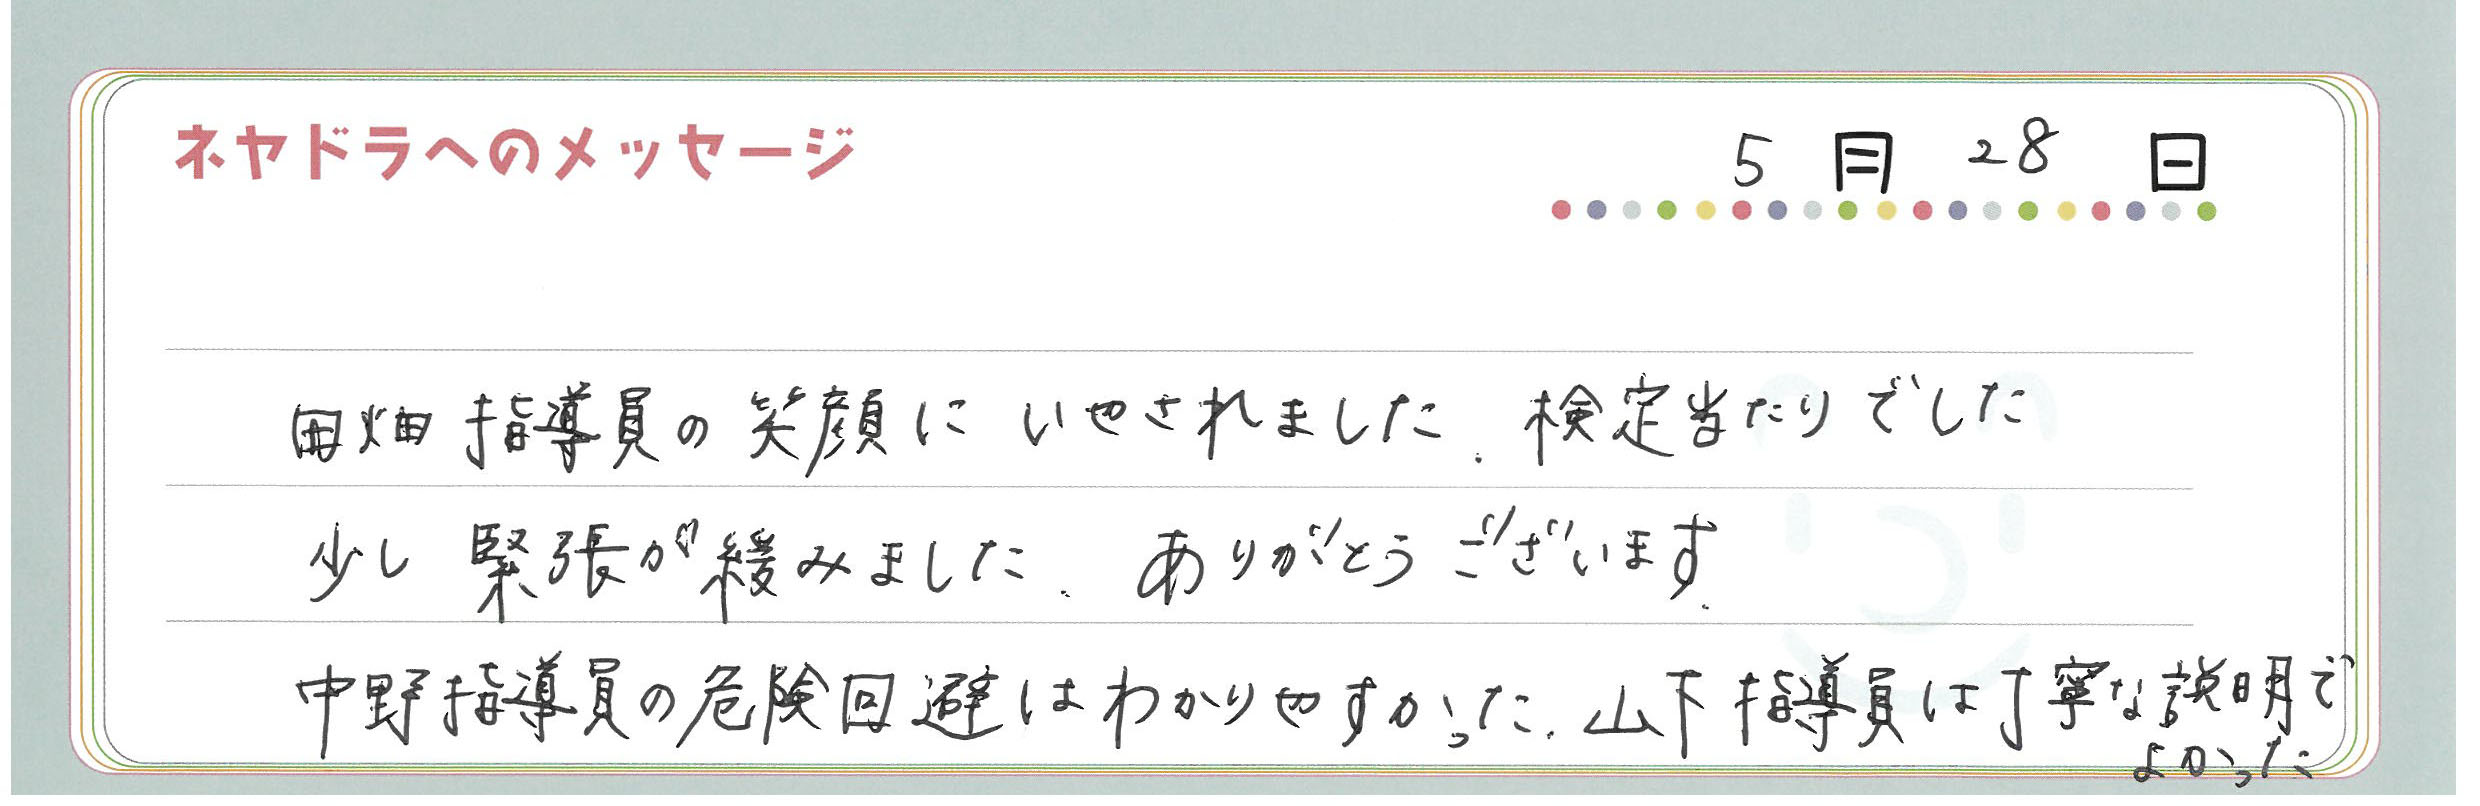 ネヤドラへのメッセージ
5月28日
田畑指導員の笑顔にいやされました. 検定当たりでした
少し緊張が緩みました. ありがとうございます.
中野指導員の危険回避はわかりやすかった. 山下指導員は丁寧な説明で
よかった